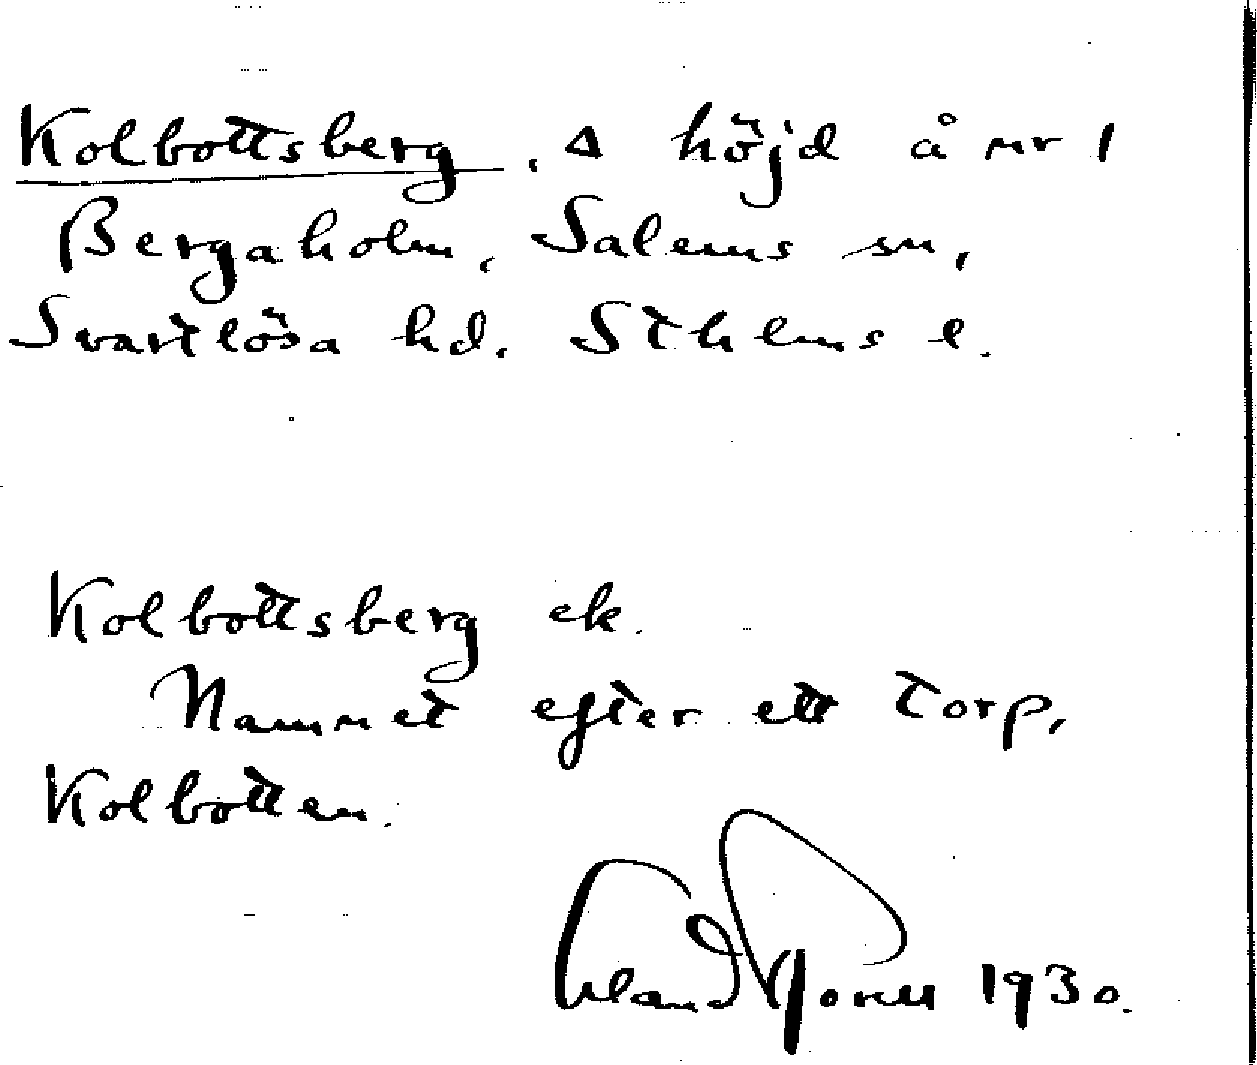 Kolbottsberg, Δ höjd å nr 1
Bergaholm, Salems sn,
Svartlösa hd. Sthlms l.
Kolbottsberg ek.
Namnet efter ett torp,
Kolbotten.
1930.